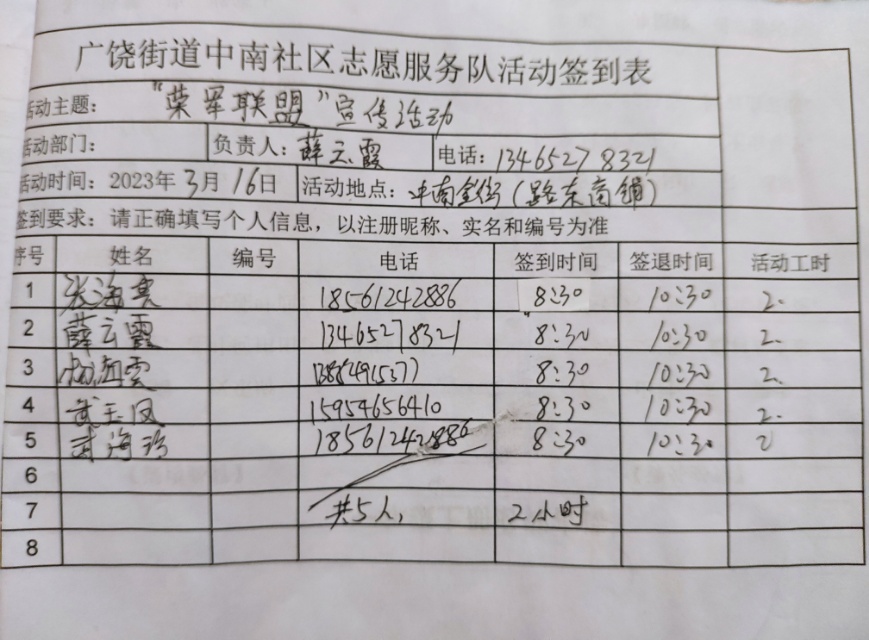 广饶街道中南社区志愿服务队活动签到表
活动主题： “荣军联盟”宣传活动
活动部门： 负责人：薛云霞 电话：13465278321
活动时间：2023年3月16日 活动地点：中南金街（路东商铺）
签到要求：请正确填写个人信息，以注册昵称、实名和编号为准
序号 姓名 编号 电话 签到时间 签退时间 活动工时
1 张海亮 18561242886 8:30 10:30 2.
2 薛云霞 13465278321 8:30 10:30 2.
3 8:30 10:30 2.
4 武玉凤 15954656410 8:30 10:30 2.
5 18561242886 8:30 10:30 2
6
7 共5人， 2小时
8